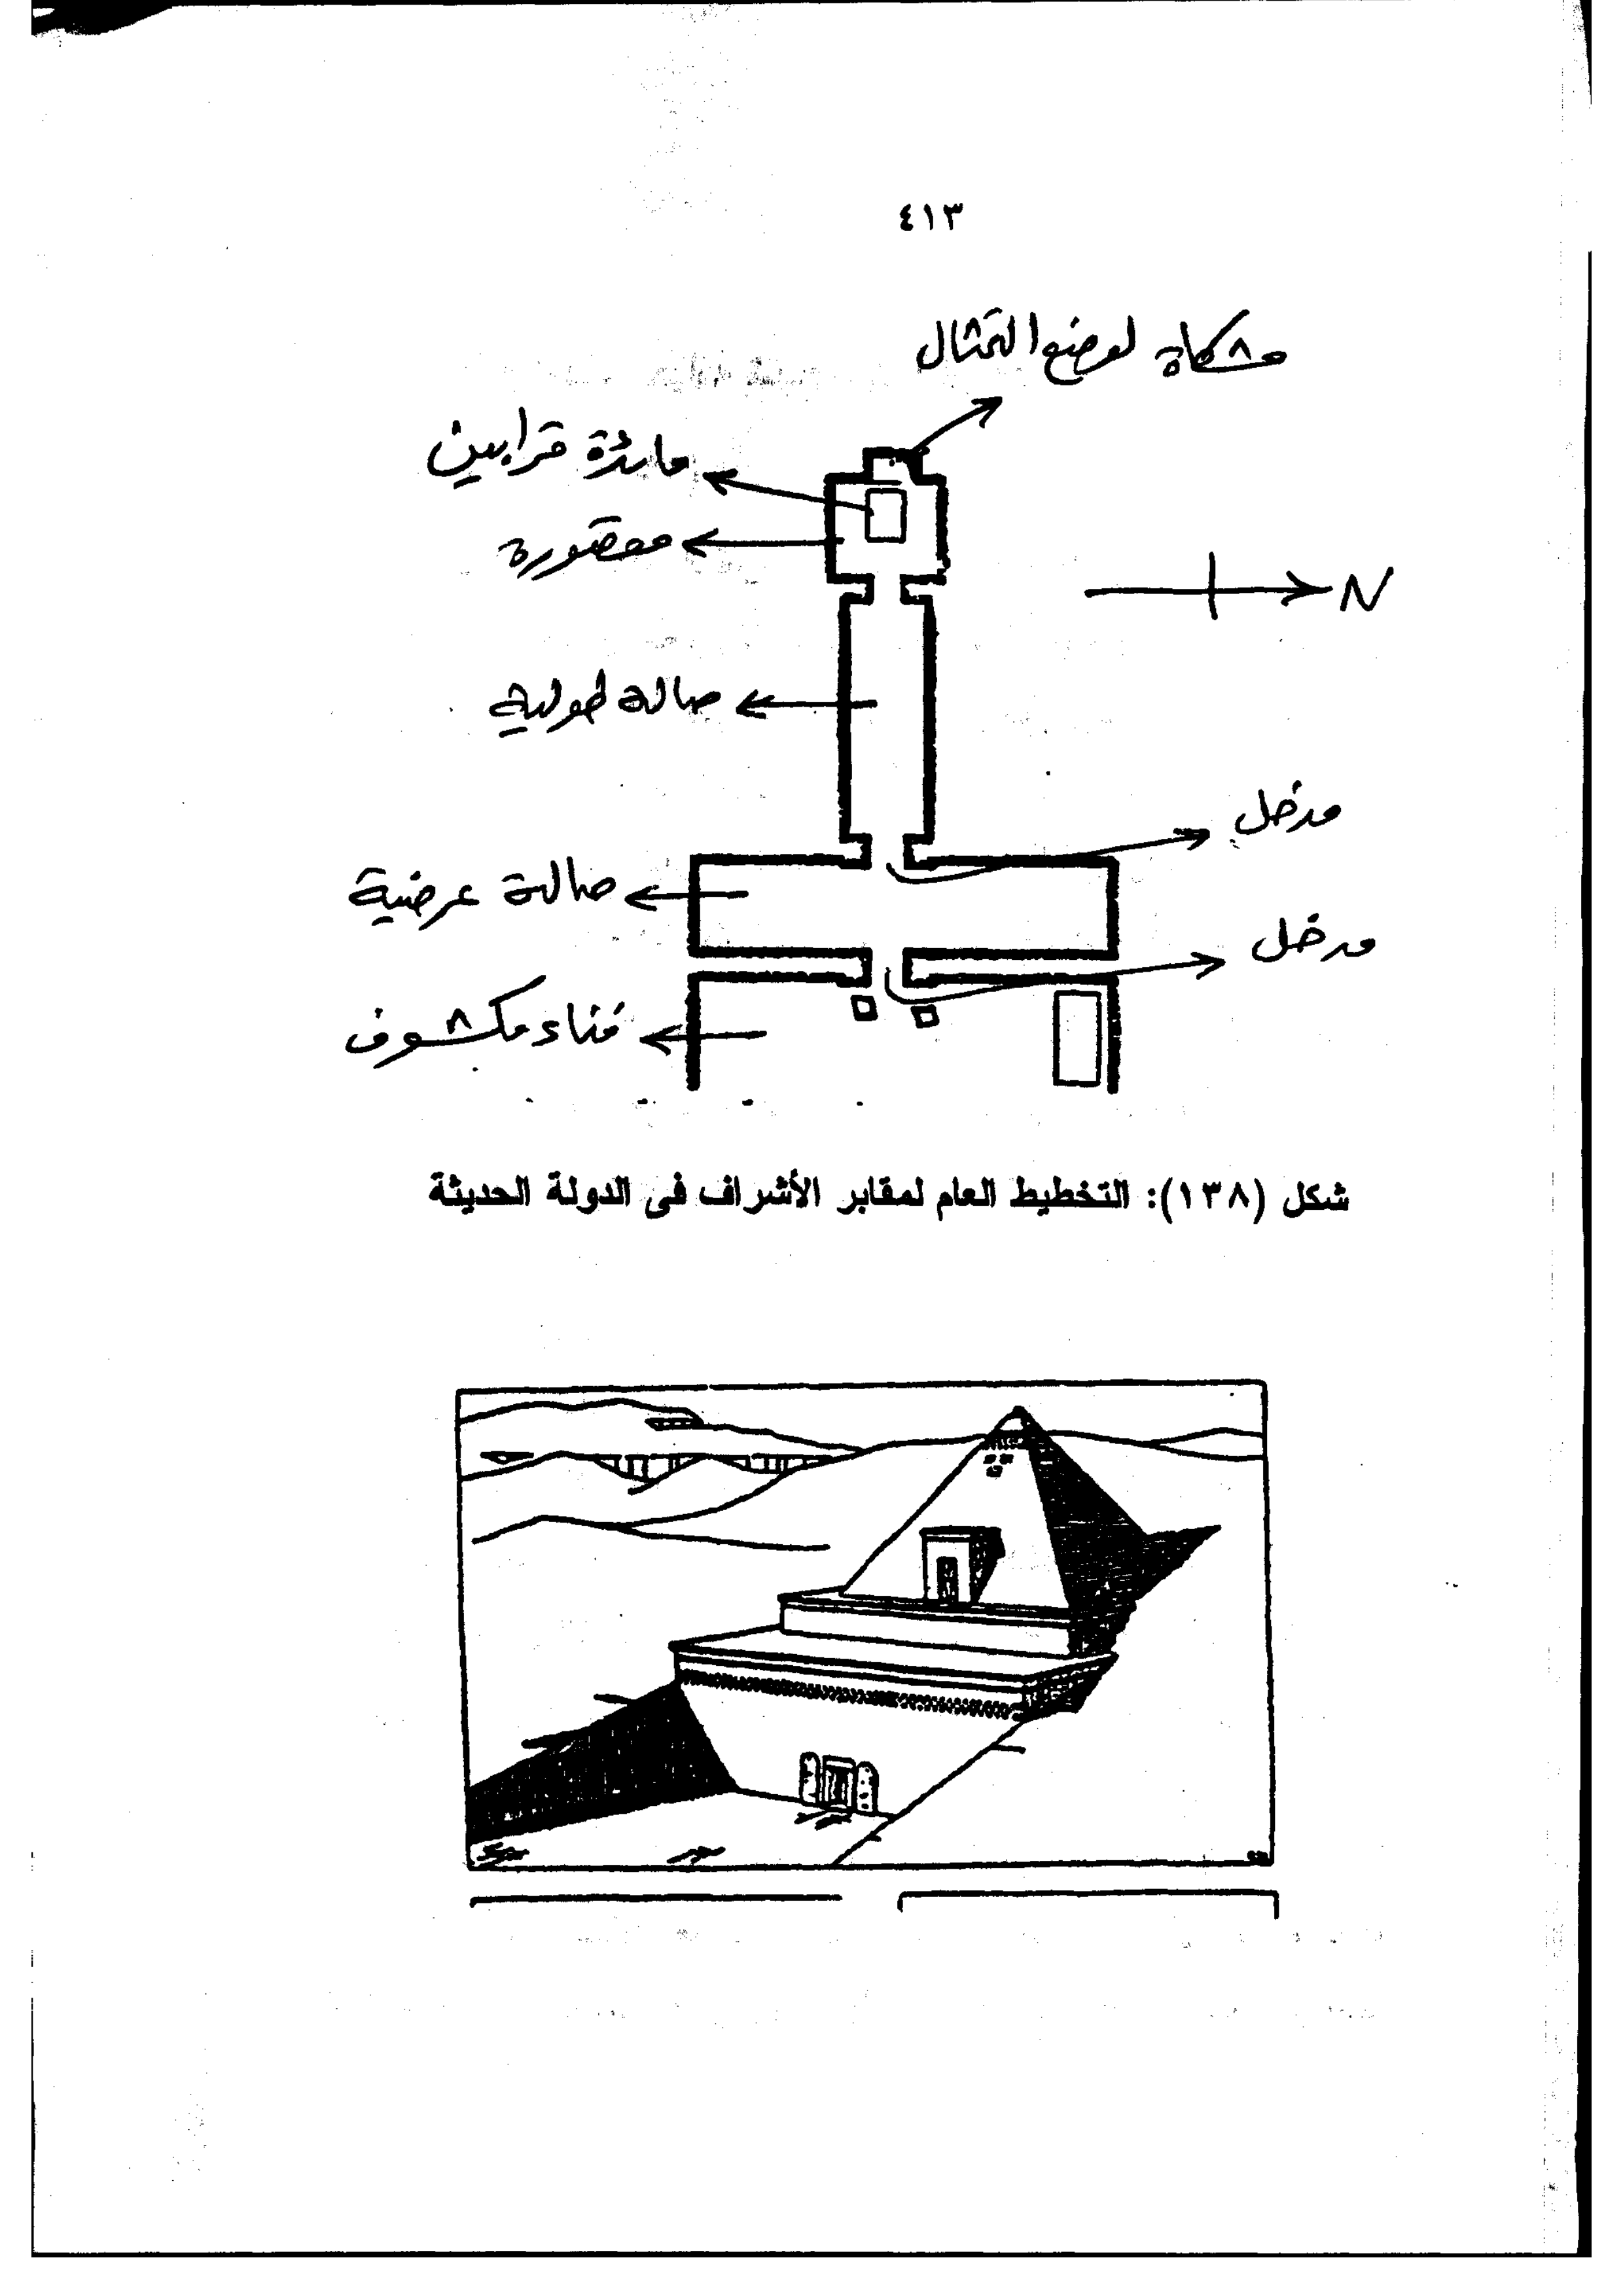 ٤١٣
مشكاة لوضع التمثال
مائدة قرابين
مقصورة
N
صالة طولية
مدخل
صالة عرضية
مدخل
فناء مكشوف
شكل (١٣٨): التخطيط العام لمقابر الأشراف فى الدولة الحديثة